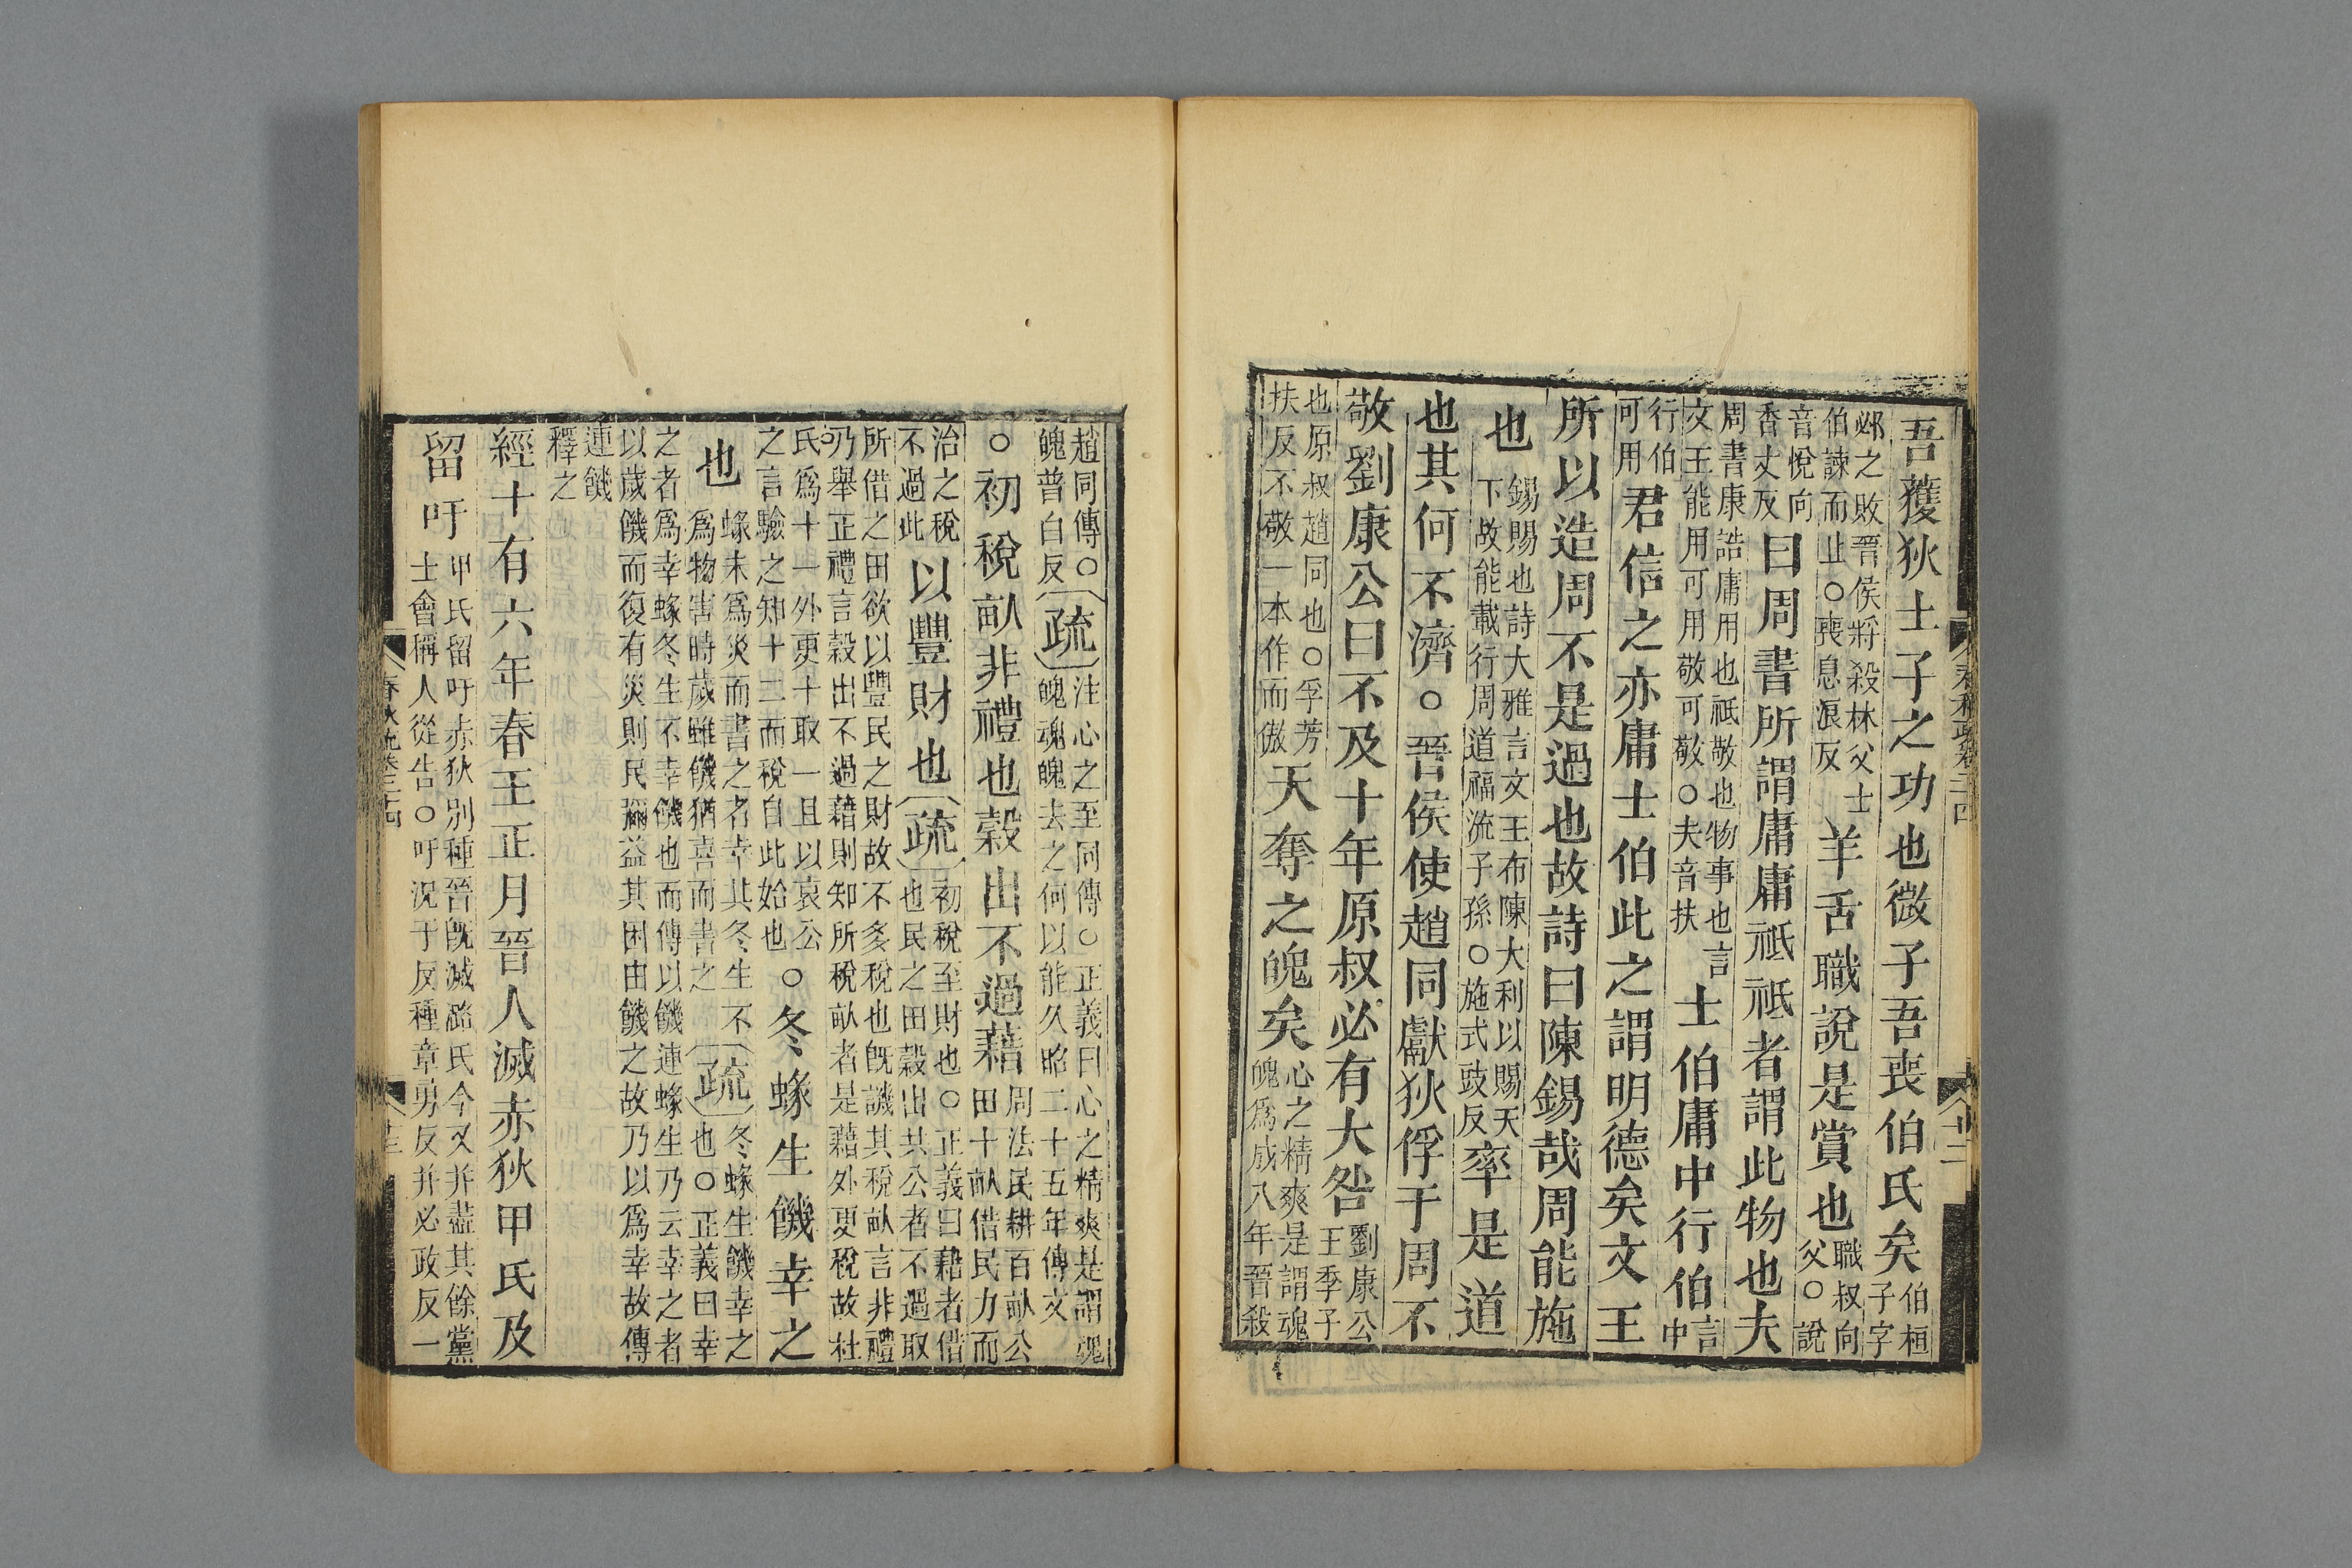 吾獲狄土子之功也微子吾喪伯氏矣伯桓子字
邲之敗晉侯將殺林父士伯諫而止○喪息浪反羊舌職說是賞也職叔向父○說
音悅向香丈反曰周書所謂庸庸祗祗者謂此物也夫
周書康誥庸用也祗敬也物事也言文王能用可用敬可敬○夫音扶士伯庸中行伯言中
行伯可用君信之亦庸士伯此之謂明德矣文王
所以造周不是過也故詩曰陳錫哉周能施
也錫賜也詩大雅言文王布陳大利以賜天下故能載行周道福流子孫○施式豉反率是道
也其何不濟○晉侯使趙同獻狄俘于周不
敬劉康公曰不及十年原叔必有大咎劉康公王季子
也原叔趙同也○孚芳扶反不敬一本作而傲天奪之魄矣心之精爽是謂魂魄爲成八年晉殺
春秋疏卷二十四
廿二
趙同傳○魄普白反疏注心之至同傳○正義曰心之精爽是謂魂魄魂魄去之何以能久昭二十五年傳文
○初稅畝非禮也穀出不過藉周法民耕百畝公田十畝借民力而
治之稅不過此以豐財也疏初稅至財也○正義曰藉者借也民之田穀出共公者不過取
所借之田欲以豐民之財故不多稅也旣譏其稅畝言非禮乃舉正禮言穀出不過藉則知所稅畝者是藉外更稅故杜
氏爲十一外更十取一且以哀公之言驗之知十二而稅自此始也○冬蝝生饑幸之
也蝝未爲災而書之者幸其冬生不爲物害時歲雖饑猶喜而書之疏冬蝝生饑幸之也○正義曰幸
之者爲幸蝝冬生不幸饑也而傳以饑連蝝生乃云幸之者以歲饑而復有災則民彌益其困由饑之故乃以爲幸故傳
連饑釋之
經十有六年春王正月晉人滅赤狄甲氏及
留吁甲氏留吁赤狄別種晉旣滅潞氏今又并盡其餘黨士會稱人從告○吁況于反種章勇反并必政反一